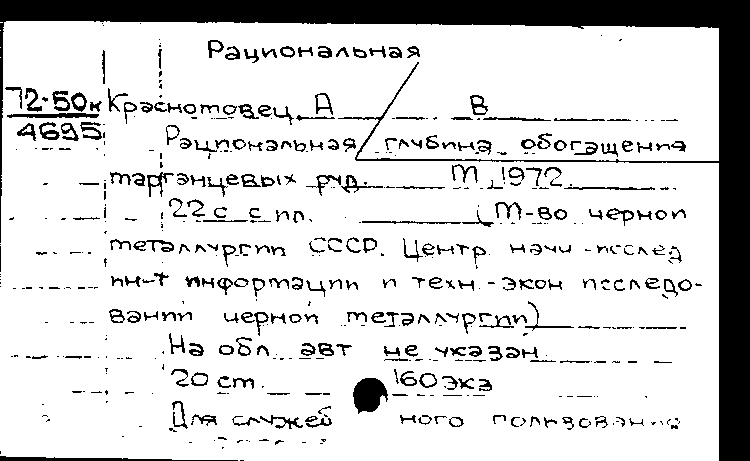 Рациональная
72-50к Краснотовец, А В
4695 Рациональная глубина обогащения
марганцевых руд. М, 1972
22 с с ил. (М-во черной
металлургии СССР. Центр научн-исслед
ин-т информации и техн-экон исследо-
ваний черной металлургии)
На обл авт не указан
20 см. 160 экз
Для служеб ного пользования